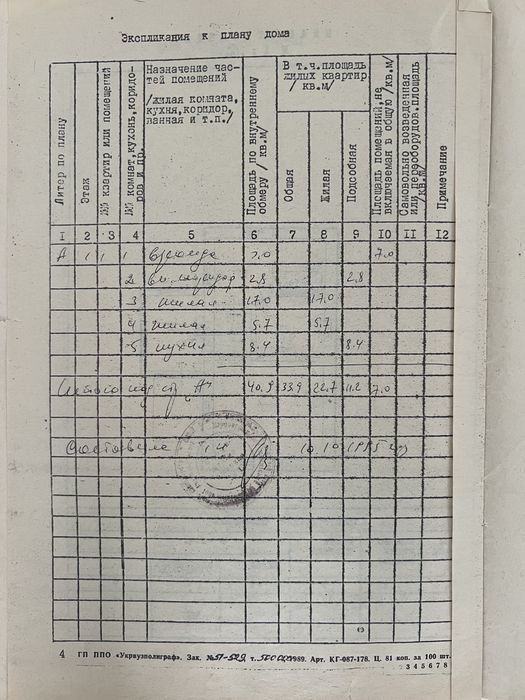 Экспликация к плану дома
Литер по плану
Этаж
№№ квартир или помещений
№№ комнат, кухонь, коридоров и др.
Назначение частей помещений /жилая комната, кухня, коридор, ванная и т.п./
Площадь по внутреннему обмеру /кв.м/
В т.ч.площадь жилых квартир /кв.м/
Общая
Жилая
Подсобная
Площадь помещений, не включаемая в общую /кв.м/
Самовольно возведенная или переоборудов.площадь /кв.м/
Примечание
1 2 3 4 5 6 7 8 9 10 11 12
А 1 1 1 7.0 7.0
2 коридор 2,8 2,8
3 жилая 17.0 17.0
4 жилая 5.7 5.7
5 кухня 8.4 8.4
Итого по стр "А" 40.9 33.9 22.7 11.2 7.0
Составила 10.10 1995
4 ГП ППО «Укрвузполиграф». Зак. № 51-529 т. 1989. Арт. КГ-087-178. Ц. 81 коп. за 100 шт.
3 4 5 6 7 8